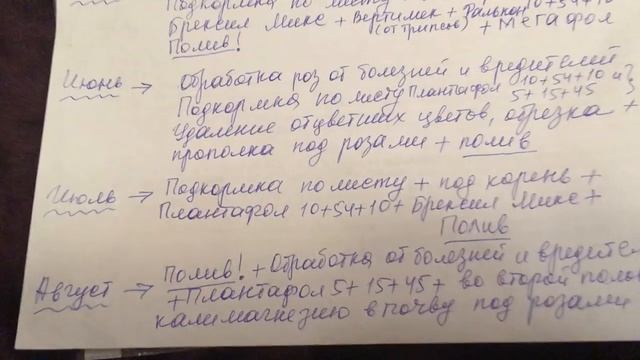 Подкормка по листу
10+54+10
Брексил Микс + Вертимек + Фалькон
(от трипсов) + Мегафол
Полив!
Июнь → Обработка роз от болезней и вредителей
Подкормка по листу Плантафол 10+54+10 и
5+15+45
Удаление отцветших цветов, обрезка +
прополка под розами + полив
Июль → Подкормка по листу + под корень +
Плантафол 10+54+10 + Брексил Микс +
Полив
Август → Полив! + Обработка от болезней и вредите
+ Плантафол 5+15+45 + во второй поло
калимагнезию в почву под розами